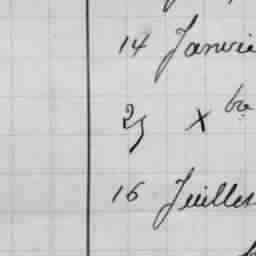 14 Janvie
25 Xbre
16 Juillet